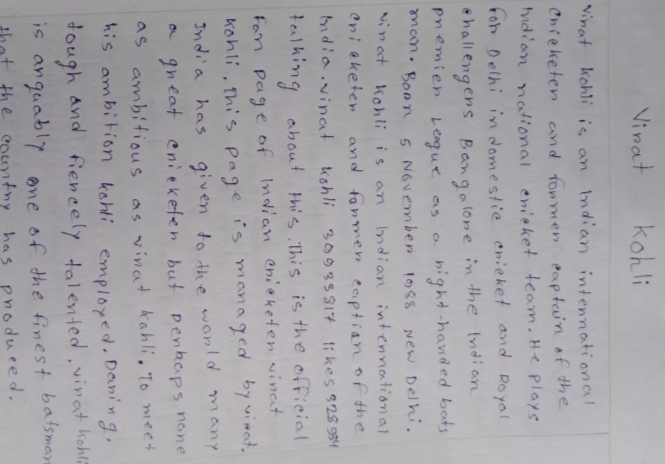 Virat kohli
Virat kohli is an Indian international
cricketer and former captain of the
Indian national cricket team. He plays
for Delhi in domestic cricket and Royal
challengers Bangalore in the Indian
premier League as a right-handed bats
man. Born 5 November 1988 New Delhi.
Virat kohli is an Indian international
cricketer and former caption of the
India. virat kohli 30939817 likes 928984
talking about this. This is the official
fan page of Indian cricketer virat
kohli. This page is managed by virat.
India has given to the world many
a great cricketer but perhaps none
as ambitious as virat kohli. To meet
his ambition kohli employed. Daring.
tough and fiercely talented. virat kohli
is arguably one of the finest batsman
that the country has produced.